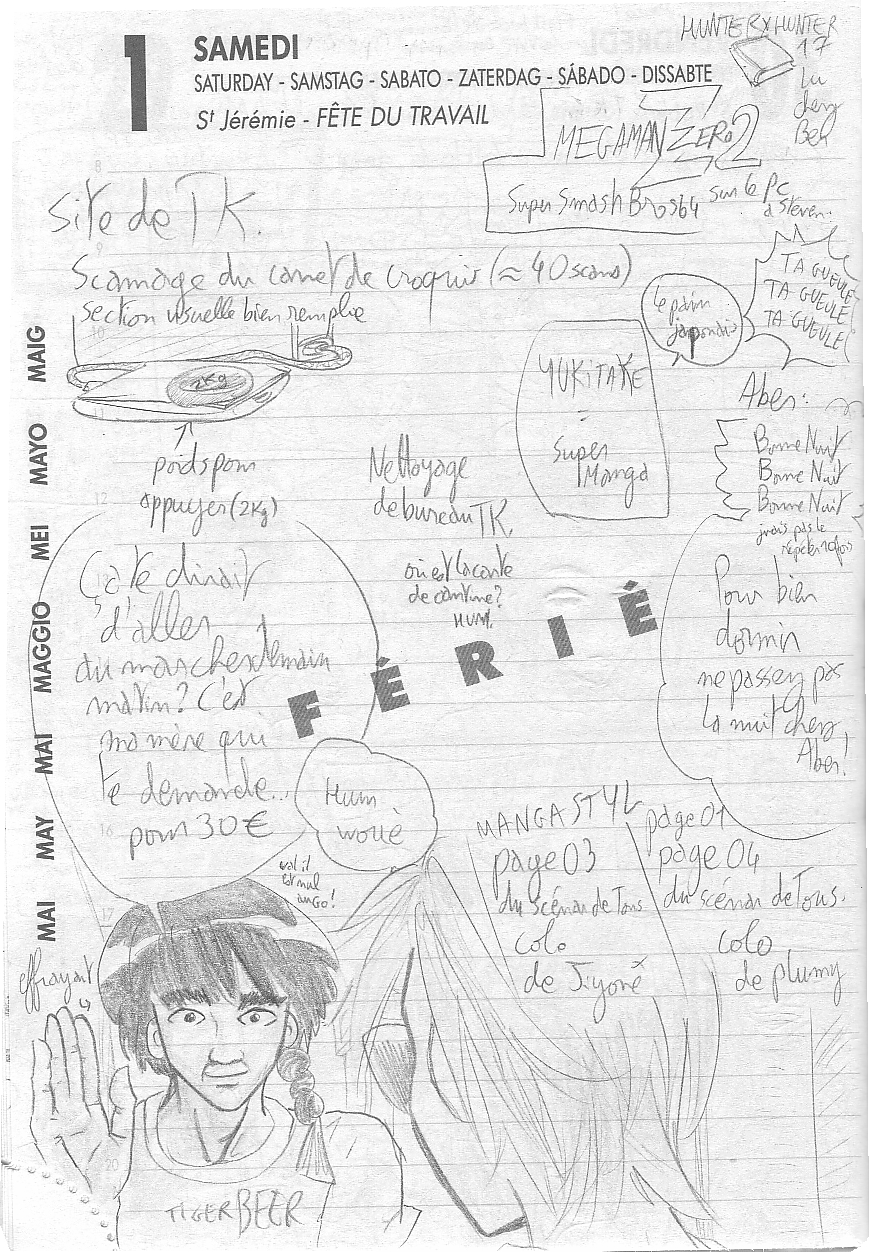 1
SAMEDI
SATURDAY - SAMSTAG - SABATO - ZATERDAG - SÁBADO - DISSABTE
St Jérémie - FÊTE DU TRAVAIL
HUNTER X HUNTER
17
Lu
chez
Ben
MEGAMAN ZERO 2
Super Smash Bros 64
sur le PC
à Steven.
Site de TK.
Scannage du carnet de croquis (≈ 40 scans)
section visuelle bien remplie
2Kg
poids pour
appuyer (2Kg)
le pain
japonais
TA GUEULE
TA GUEULE
TA GUEULE
YUKITAKE
=
Super
Manga
Aber:
Bonne Nuit
Bonne Nuit
Bonne Nuit
j'vais pas le
répéter
Pour bien
dormir
ne passez pas
la nuit chez
Aber!
Nettoyage
de bureau TK.
où est la carte
de cantine?
HUM.
MAIG
MAYO
MEI
MAGGIO
MAI
MAY
MAI
FÉRIÉ
Ça te dirait
d'aller
au marcher demain
matin? C'est
ma mère qui
te demande...
pour 30€
Hum
wouè
il
est nul
au GO!
MANGASTYL
page 03
du scénar de Tous
colo
de Jiyoné
page 01
page 04
du scénar de Tous.
colo
de plumy
effrayant
TIGER BEER
8
9
10
11
12
16
17
20